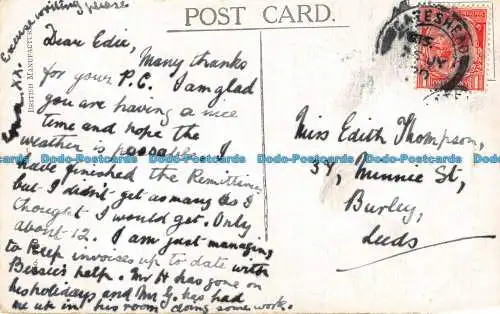 POST CARD.
BRITISH MANUFACTURE
Excuse writing please
xx.
Dear Edie,
Many thanks
for your P.C. I am glad
you are having a nice
time and hope the
weather is I
have finished the
but I didn't get as many as I
thought I would get. Only
about 12. I am just managing
to keep invoices up to date with
Bessie's help. Mr H has gone on
his holidays and Mr G. has had
me up in his room doing some work.
GATESHEAD
Miss Edith Thompson,
54, Minnie St,
Burley,
Leeds
Dodo-Postcards Dodo-Postcards Dodo-Postcards Dodo-Postcards